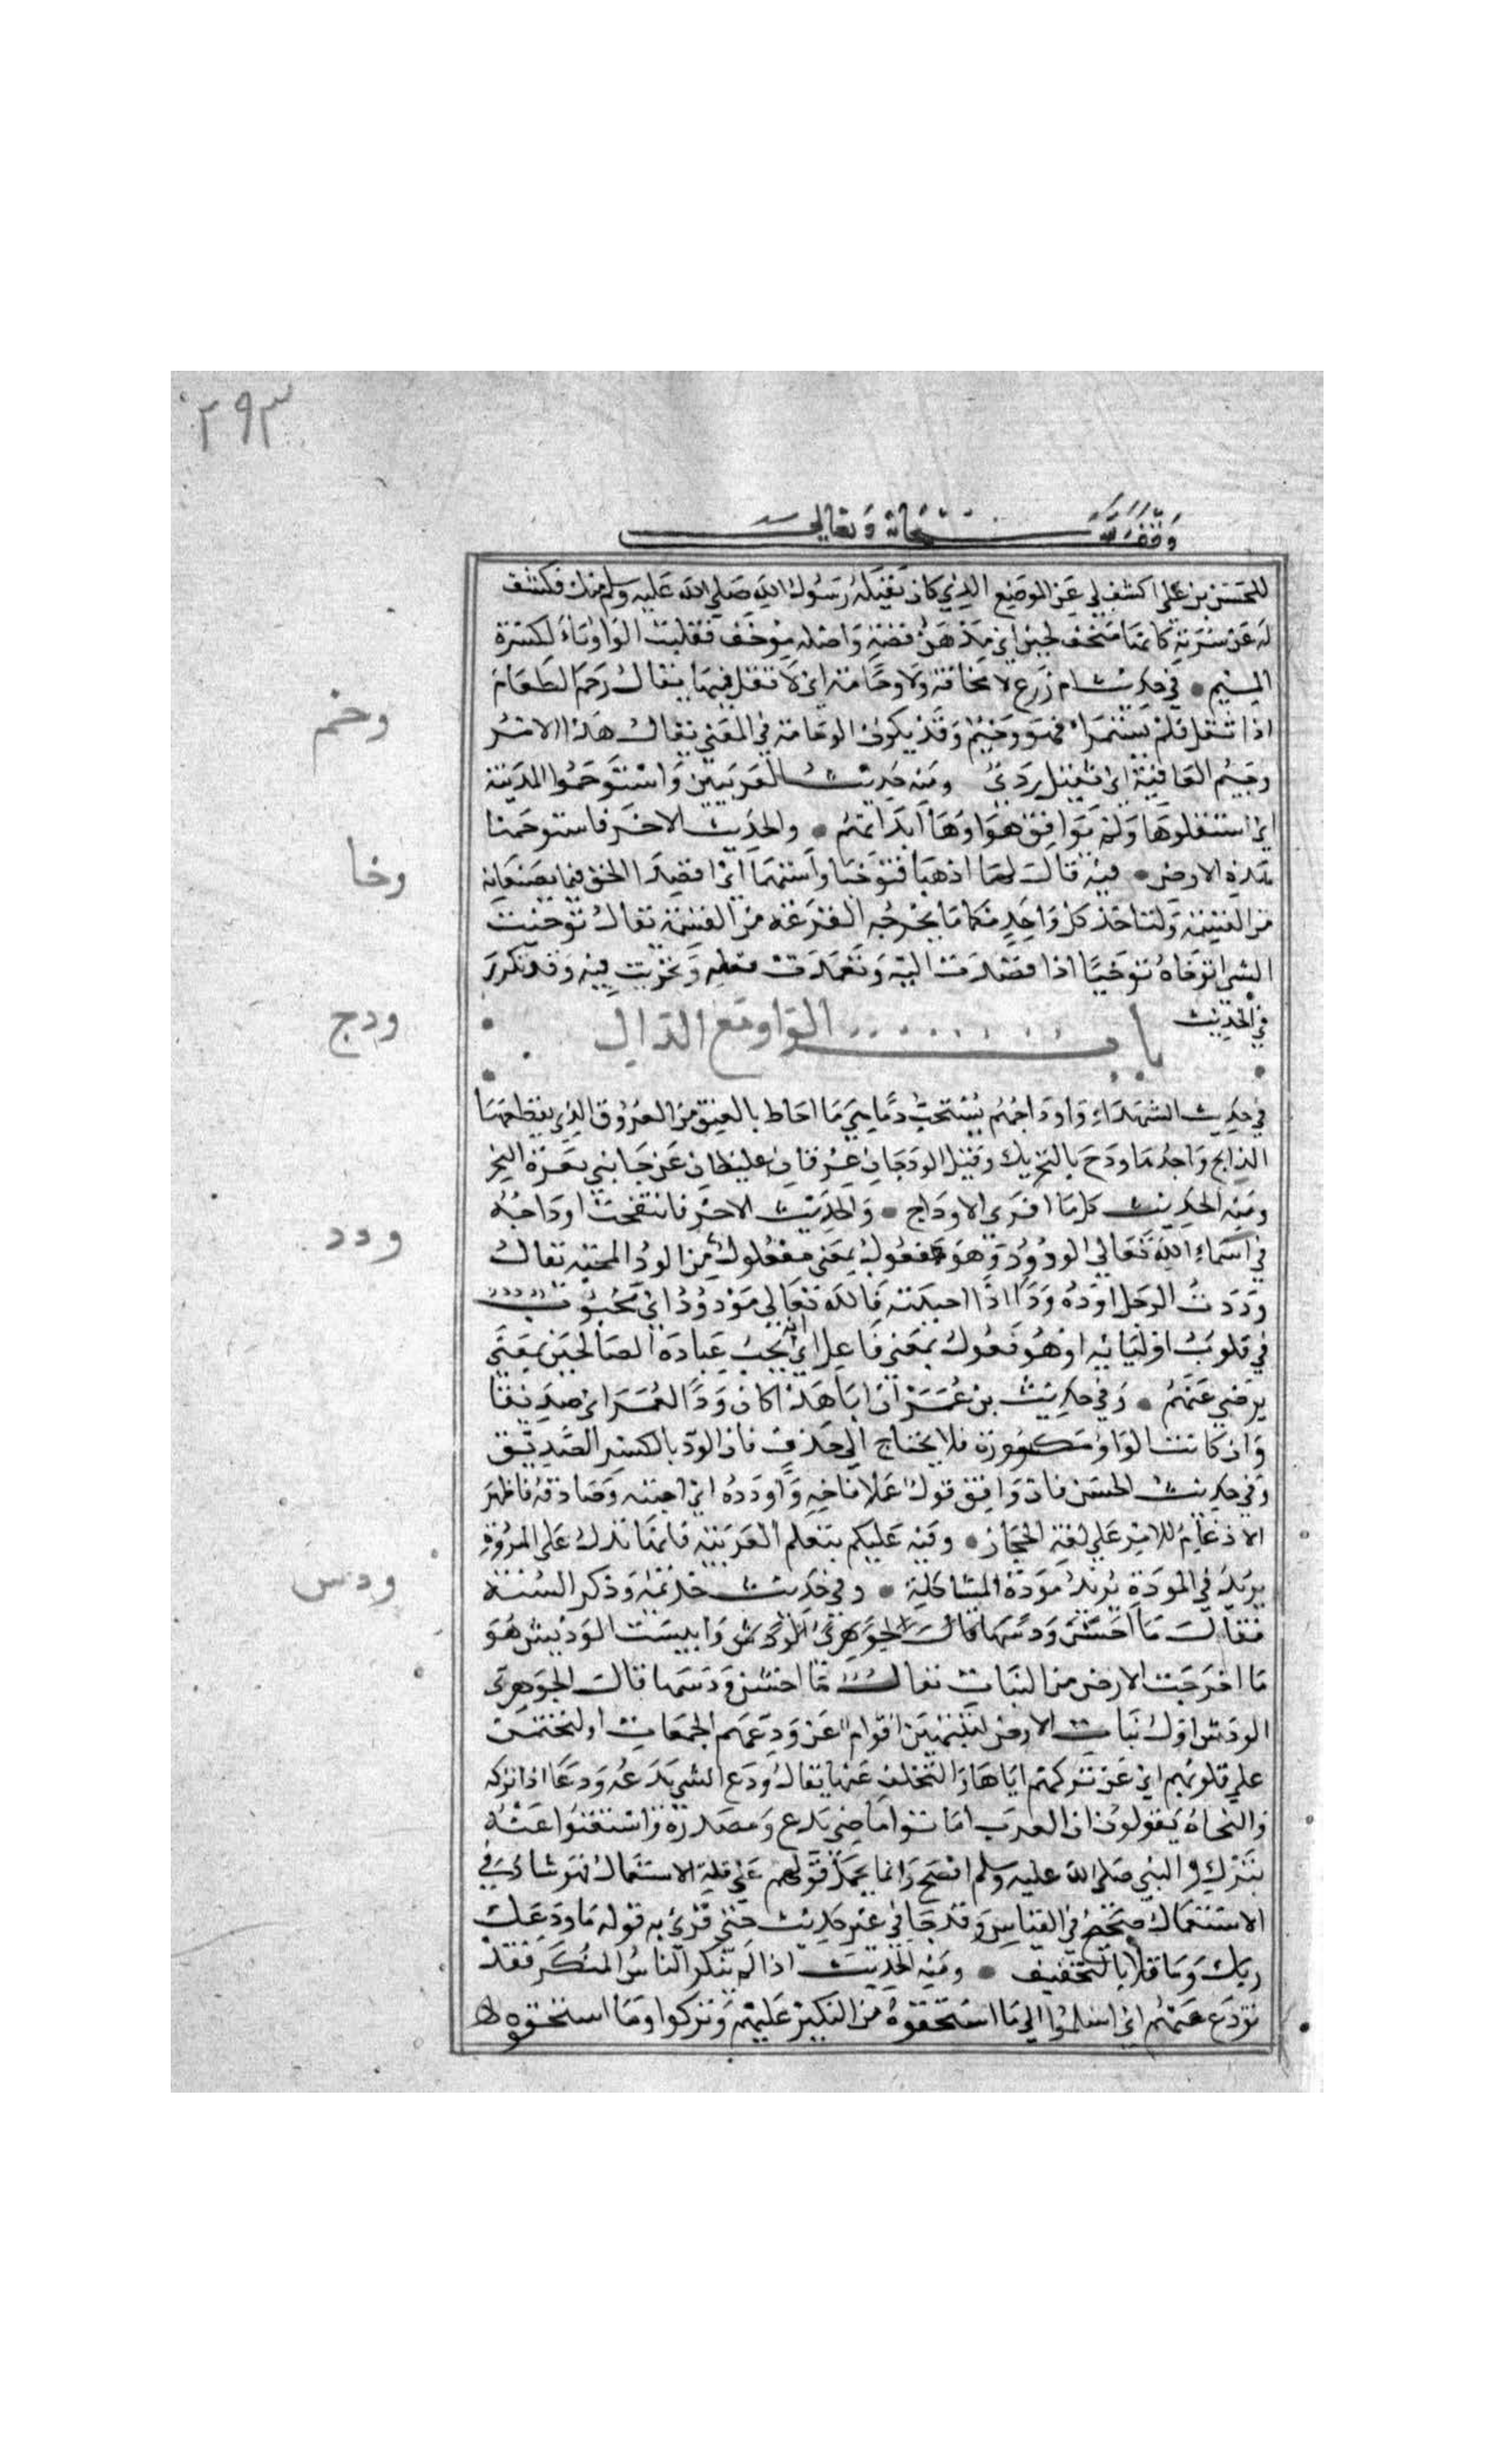 ٢٩٣
وقف لله سبحانه وتعالى
للحسن بن علي اكشف لي عن الموضع الذي كان يقبله رسول الله صلي الله عليه وسلم منك فكشف
له عن سرته كانها متخف لجين اي مذهن فضة واصله يوخف فقلبت الواو ياء لكسرة
الميم • في حديث ام زرع لا مخافة ولا وخامة اي لا ثقل فيها يقال وخم الطعام
وخم
اذا ثقل فلم يستمرا فهو وخيم وقد يكون الوخامة في المعني يقال هذا الامر
وخيم العاقبة اي ثقيل ردئ ومنه حديث العرنيين واستوخموا المدينة
اي استثقلوها ولم يوافق هواوها ابدانهم • والحديث الاخر فاستوخمنا
هذه الارض • فيه قالت لهما اذهبا فتوخيا واستهما اي اقصدا الحق فيما يصنعانه
وخا
من القسمة ولتاخذ كل واحد منكما ما يخرجه القرعة من القسمة يقال توخيت
الشي اتوخاه توخيا اذا قصدت اليه وتعمدت فعله وتحريت فيه وقد تكرر
في الحديث
باب الواو مع الدال
ودج
في حديث الشهداء واوداجهم يستحب دما هي ما احاط بالعنق من العروق الذي يقطعها
الذابح واحدها ودج بالتحريك وقيل الودجان عرقان غليظان عن جانبي ثغرة النحر
ومنه الحديث كل ما افري الاوداج • والحديث الاخر فانتفخت اوداجه
في اسماء الله تعالي الودود وهو فعول بمعني مفعول من الود المحبة يقال
ودد
وددت الرجل اوده ودا اذا احببته فالله تعالي مودود اي محبوب
في قلوب اوليائه او هو فعول بمعني فاعل اي انه يحب عباده الصالحين بمعني
يرضي عنهم • وفي حديث بن عمر ان ابا هذا كان ودا لعمر اي صديقا
وان كانت الواو مكسورة فلا يحتاج الي حذف فان الود بالكسر الصديق
وفي حديث الحسن فان وافق قول عملا فاخه واودده اي احببه وصادقه فاظهر
الادغام للامر علي لغة الحجاز • وفيه عليكم بتعلم العربية فانها تدل علي المروة
يزيد في المودة يريد مودة المشاكلة • وفي حديث خزيمة وذكر السنة
ودس
فقالت ما احسن ودسها قال الجوهري وايبست الوديس هو
ما اخرجت الارض من النبات يقال ما احسن ودسها قال الجوهري
الودس اول نبات الارض لينتهين اقوام عن ودعهم الجمعات او ليختمن
علي قلوبهم اي عن تركهم اياها والتخلف عنها يقال ودع الشي يدعه ودعا اذا تركه
والنحاة يقولون ان العرب اماتوا ماضي يدع ومصدره واستغنوا عنه
بترك والنبي صلي الله عليه وسلم افصح وانما يحمل قولهم علي قلة الاستعمال فهو شاذ في
الاستعمال صحيح في القياس وقد جا في غير حديث حتي قرئ به قوله ما ودعك
ربك وما قلا بالتخفيف • ومنه الحديث اذا لم ينكر الناس المنكر فقد
تودع منهم اي اسلموا الي ما استحقوه من النكير عليهم وتركوا وما استحقوه